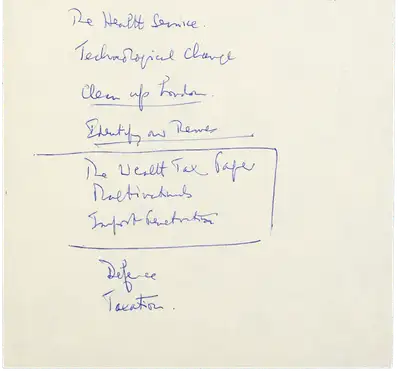 The Health Service.
Technological Change
Clean up London.
Identify our
The Wealth Tax Paper
Multinationals
Import Penetration
Defence
Taxation.